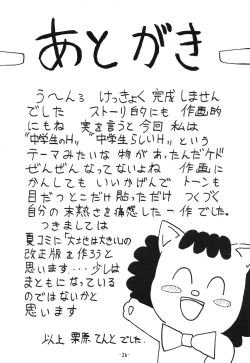 あとがき
う〜ん。 けっきょく 完成しません
でした ストーリ的にも 作画的
にもね 実を言うと 今回 私は
"中学生のH" "中学生らしいH" という
テーマみたいな 物が あったんだケド
ぜんぜん なってないよね 作画に
かんしても いいかげんで トーンも
目だつとこだけ貼っただけ つくづく
自分の未熟さを痛感した一作でした。
つきましては
夏コミに「大地は大きい」の
改正版を作ろうと
思います・・・少しは
まともになっている
のではないかと
思います
以上 栗原てんと でした。
-26-